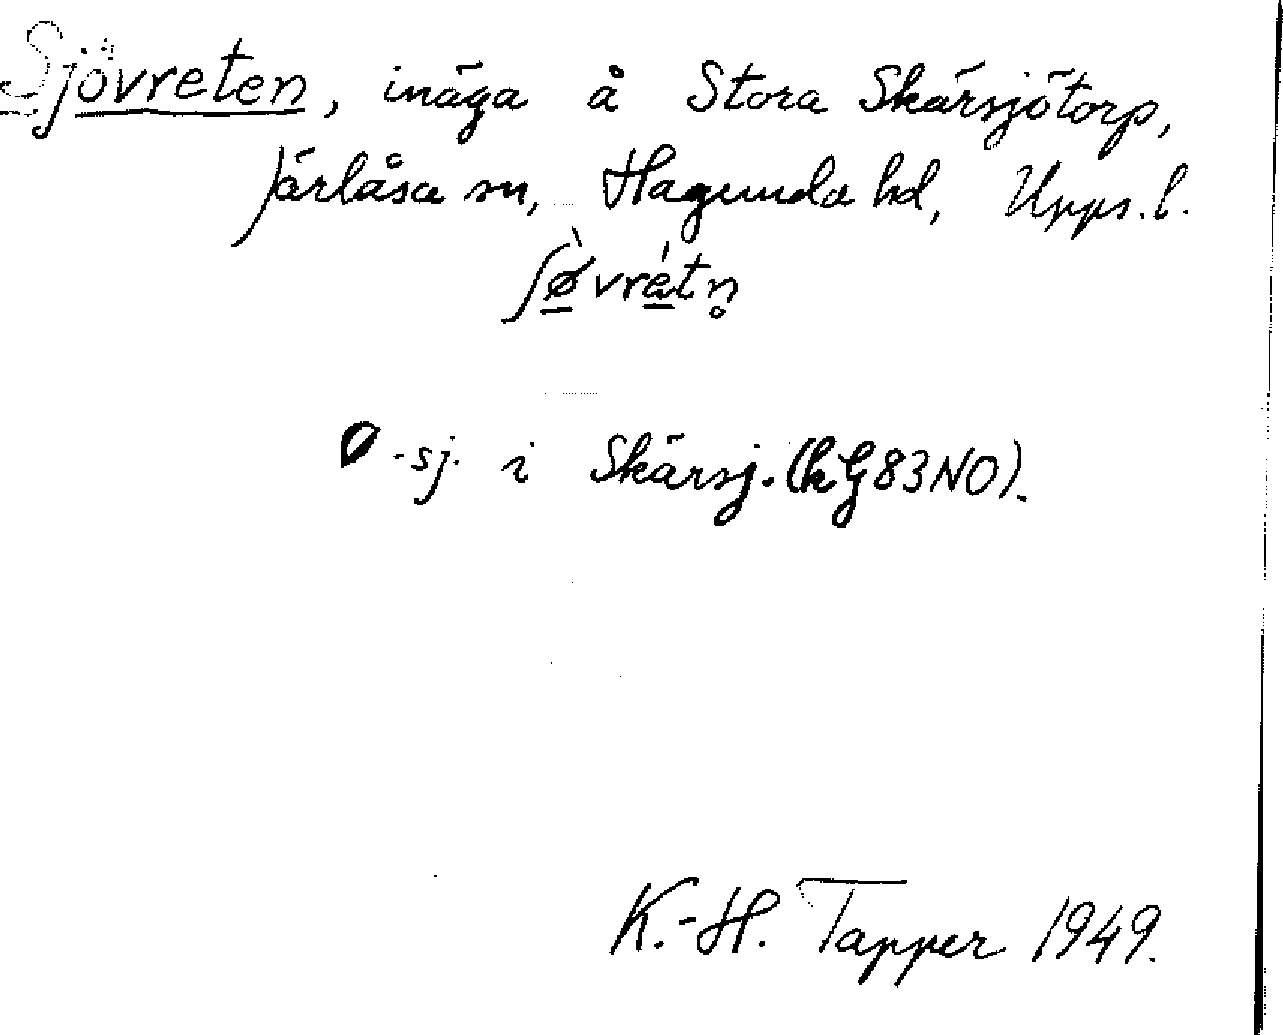 Sjövreten, inäga å Stora Skärsjötorp,
Järlåsa sn, Hagunda hd, Upps. l.
ʃø̀vrétn̥
-sj. i Skärsj. (hg 83 NO).
K.-H. Tapper 1949.